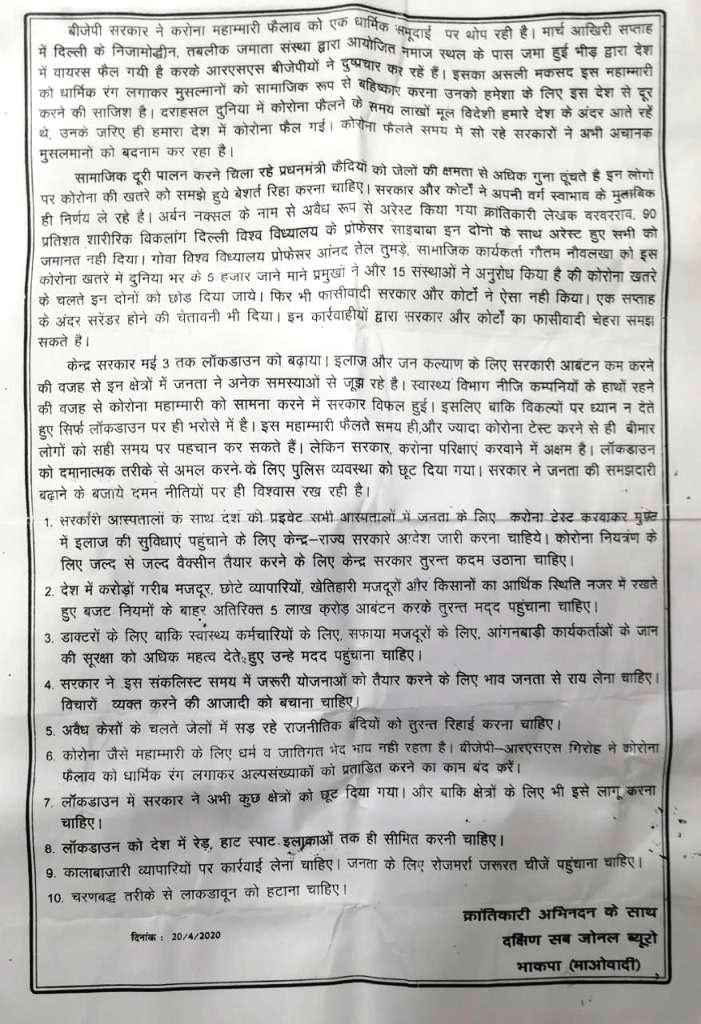 बीजेपी सरकार ने करोना महाम्मारी फैलाव को एक धार्मिक समूदाई पर थोप रही है। मार्च आखिरी सप्ताह
में दिल्ली के निजामोद्धीन, तबलीक जमाता संस्था द्वारा आयोजित नमाज स्थल के पास जमा हुई भीड़ द्वारा देश
में वायरस फैल गयी है करके आरएसएस बीजेपीयों ने दुष्प्रचार कर रहें हैं। इसका असली मकसद इस महाम्मारी
को धार्मिक रंग लगाकर मुसल्मानों को सामाजिक रूप से बहिष्कार करना उनको हमेशा के लिए इस देश से दूर
करने की साजिश है। दराहसल दुनिया में कोरोना फैलने के समय लाखों मूल विदेशी हमारे देश के अंदर आते रहें
थे, उनके जरिए ही हमारा देश में कोरोना फैल गई। कोरोना फैलते समय में सो रहे सरकारों ने अभी अचानक
मुसलमानों को बदनाम कर रहा है।
सामाजिक दूरी पालन करने चिला रहे प्रधनमंत्री कैदियों को जेलों की क्षमता से अधिक गुना ठूंचते है इन लोगों
पर कोरोना की खतरे को समझे हुये बेशर्त रिहा करना चाहिए। सरकार और कोर्टो ने अपनी वर्ग स्वाभाव के मुताबिक
ही निर्णय ले रहे है। अर्बन नक्सल के नाम से अवैध रूप से अरेस्ट किया गया क्रांतिकारी लेखक वरवरराव, 90
प्रतिशत शारीरिक विकलांग दिल्ली विश्व विध्यालय के प्रोफेसर साइबाबा इन दोनो के साथ अरेस्ट हुए सभी को
जमानत नही दिया। गोवा विश्व विध्यालय प्रोफेसर आंनद तेल तुमड़े, सामाजिक कार्यकर्ता गौतम नौवलखा को इस
कोरोना खतरे में दुनिया भर के 5 हजार जाने माने प्रमुखों ने और 15 संस्थाओं ने अनुरोध किया है की कोरोना खतरे
के चलते इन दोनों को छोड़ दिया जाये। फिर भी फासीवादी सरकार और कोर्टो ने ऐसा नही किया। एक सप्ताह
के अंदर सरेंडर होने की चेतावनी भी दिया। इन कार्रवाहीयों द्वारा सरकार और कोर्टो का फासीवादी चेहरा समझ
सकते है।
केन्द्र सरकार मई 3 तक लॉकडाउन को बढ़ाया। इलाज और जन कल्याण के लिए सरकारी आबंटन कम करने
की वजह से इन क्षेत्रों में जनता ने अनेक समस्याओं से जूझ रहे है। स्वास्थ्य विभाग नीजि कम्पनियों के हाथों रहने
की वजह से कोरोना महाम्मारी को सामना करने में सरकार विफल हुई। इसलिए बाकि विकल्पों पर ध्यान न देते
हुए सिर्फ लॉकडाउन पर ही भरोसे में है। इस महाम्मारी फैलते समय ही,और ज्यादा कोरोना टेस्ट करने से ही बीमार
लोगों को सही समय पर पहचान कर सकते हैं। लेकिन सरकार, करोना परिक्षाएं करवाने में अक्षम है। लॉकडाउन
को दमानात्मक तरीके से अमल करने के लिए पुलिस व्यवस्था को छूट दिया गया। सरकार ने जनता की समझदारी
बढ़ाने के बजाये दमन नीतियों पर ही विश्वास रख रही है।
1. सरकारी आस्पतालों के साथ देश की प्रइवेट सभी आस्पतालों में जनता के लिए करोना टेस्ट करवाकर मुफ्त
में इलाज की सुविधाएं पहुंचाने के लिए केन्द्र–राज्य सरकारे आदेश जारी करना चाहिये। कोरोना नियत्रंण के
लिए जल्द से जल्द वैक्सीन तैयार करने के लिए केन्द्र सरकार तुरन्त कदम उठाना चाहिए।
2. देश में करोड़ों गरीब मजदूर, छोटे व्यापारियों, खेतिहारी मजदूरों और किसानों का आर्थिक स्थिति नजर में रखते
हुए बजट नियमों के बाहर अतिरिक्त 5 लाख करोड़ आबंटन करके तुरन्त मद्द पहुंचाना चाहिए।
3. डाक्टरों के लिए बाकि स्वास्थ्य कर्मचारियों के लिए, सफाया मजदूरों के लिए, आंगनबाड़ी कार्यकर्ताओं के जान
की सुरक्षा को अधिक महत्व देते हुए उन्हे मदद पहुंचाना चाहिए।
4. सरकार ने इस संकलिस्ट समय में जरूरी योजनाओं को तैयार करने के लिए भाव जनता से राय लेना चाहिए।
विचारों व्यक्त करने की आजादी को बचाना चाहिए।
5. अवैध केसों के चलते जेलों में सड़ रहे राजनीतिक बंदियों को तुरन्त रिहाई करना चाहिए।
6. कोरोना जैसे महाम्मारी के लिए धर्म व जातिगत भेद भाव नही रहता है। बीजेपी–आरएसएस गिरोह ने कोरोना
फैलाव को धार्मिक रंग लगाकर अल्पसंख्याकों को प्रताडित करने का काम बंद करें।
7. लॉकडाउन में सरकार ने अभी कुछ क्षेत्रों को छूट दिया गया। और बाकि क्षेत्रों के लिए भी इसे लागू करना
चाहिए।
8. लॉकडाउन को देश में रेड़, हाट स्पाट इलाकाओं तक ही सीमित करनी चाहिए।
9. कालाबाजारी व्यापारियों पर कार्रवाई लेना चाहिए। जनता के लिए रोजमर्रा जरूरत चीजें पहुंचाना चाहिए।
10. चरणबद्ध तरीके से लाकडावून को हटाना चाहिए।
क्रांतिकारी अभिनदन के साथ
दिनांक : 20/4/2020
दक्षिण सब जोनल ब्यूरो
भाकपा (माओवादी)